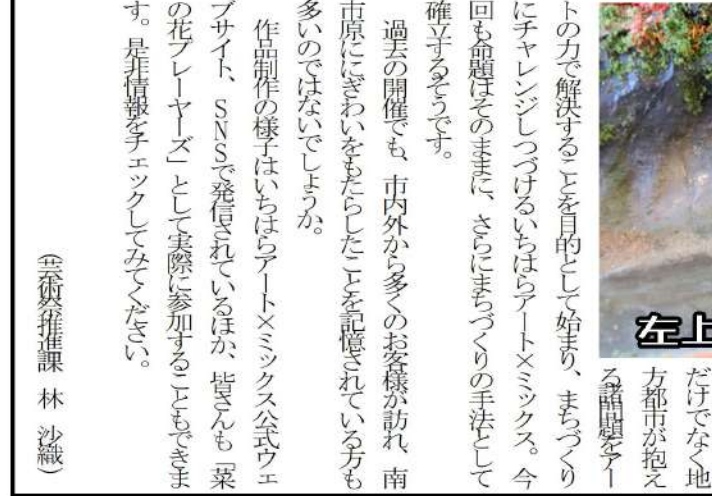 左上
だけでなく地
方都市が抱え
る諸問題をアー
トの力で解決することを目的として始まり、まちづくり
にチャレンジしつづけるいちはらアート×ミックス。今
回も命題はそのままに、さらにまちづくりの手法として
確立するそうです。
過去の開催でも、市内外から多くのお客様が訪れ、南
市原ににぎわいをもたらしたことを記憶されている方も
多いのではないでしょうか。
作品制作の様子はいちはらアート×ミックス公式ウェ
ブサイト、SNSで発信されているほか、皆さんも「菜
の花プレーヤーズ」として実際に参加することもできま
す。是非情報をチェックしてみてください。
(芸術祭推進課 林 沙織)